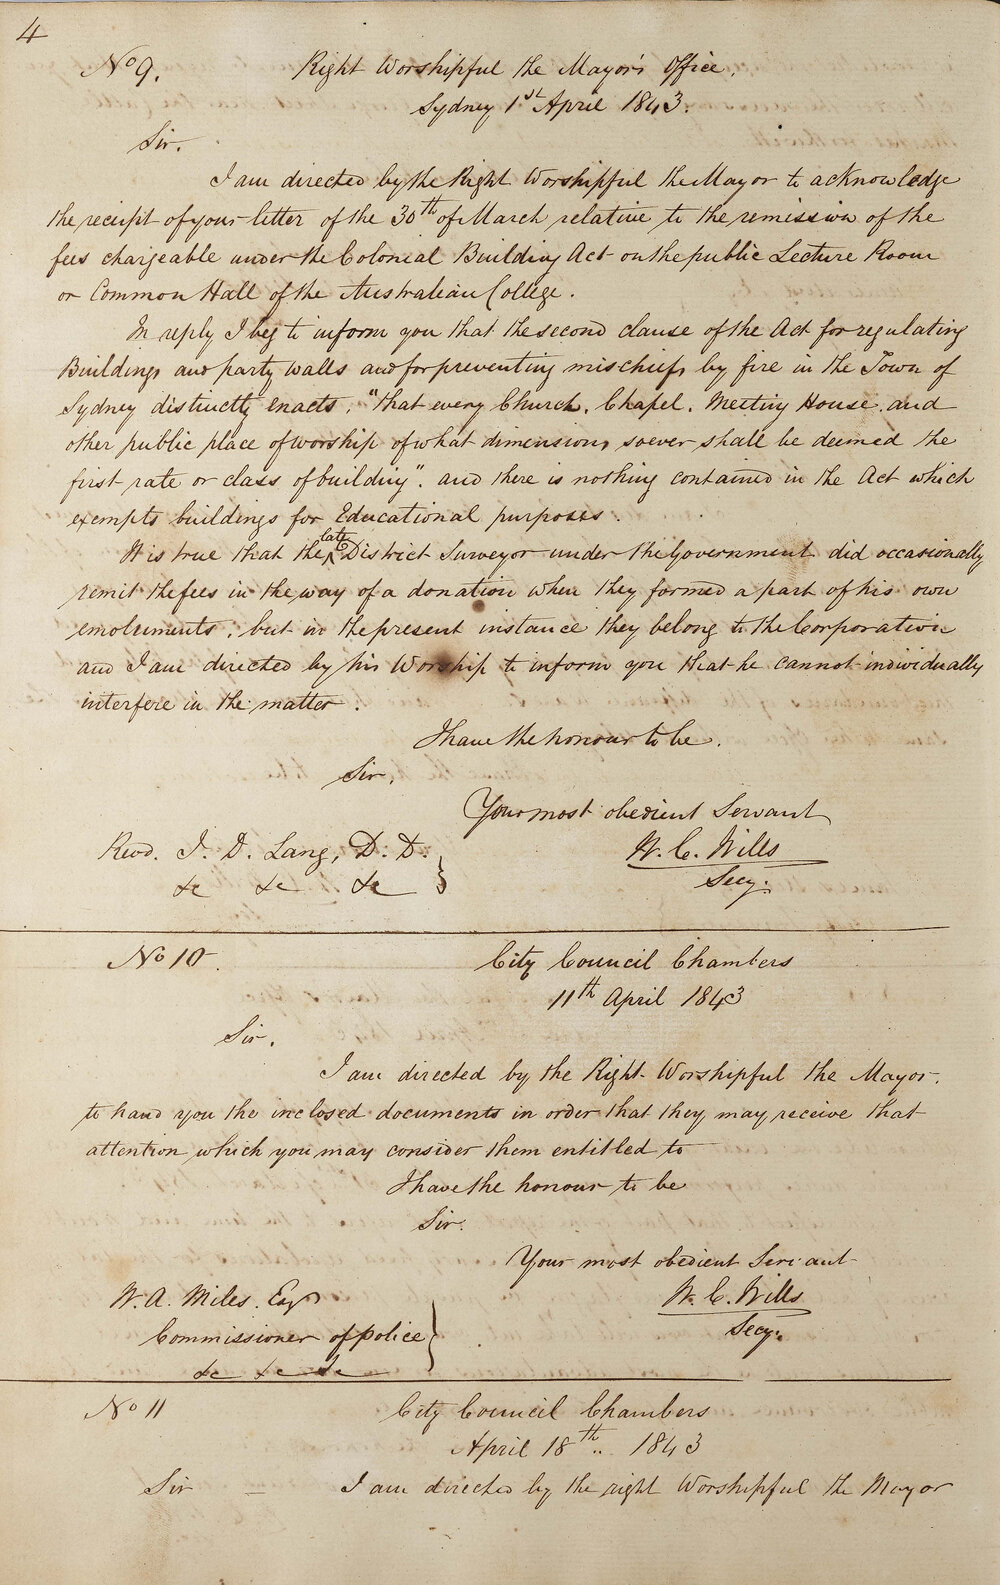 4
No 9. Right Worshipful the Mayor's Office,
Sydney 1st April 1843.
Sir.
I am directed by the Right Worshipful the Mayor to acknowledge
the receipt of your letter of the 30th of March relative to the remission of the
fees chargeable under the Colonial Building Act on the public Lecture Room
or Common Hall of the Australian College.
In reply I beg to inform you that the second clause of the Act for regulating
Buildings and party walls and for preventing mischiefs by fire in the Town of
Sydney distinctly enacts, "that every Church, Chapel, Meeting House and
other public place of worship of what dimensions soever shall be deemed the
first rate or class of building". and there is nothing contained in the Act which
exempts buildings for Educational purposes.
It is true that the late District Surveyor under the Government did occasionally
remit the fees in the way of a donation when they formed a part of his own
emoluments; but in the present instance they belong to the Corporation
and I am directed by his Worship to inform you that he cannot individually
interfere in the matter.
I have the honour to be.
Sir,
Your most obedient Servant
Revd. J. D. Lang, D. D. W. C. Wills
&c &c &c } Secy.
No 10. City Council Chambers
11th April 1843
Sir.
I am directed by the Right Worshipful the Mayor.
to hand you the inclosed documents in order that they may receive that
attention which you may consider them entitled to
I have the honour to be
Sir.
Your most obedient Servant
W. A. Miles. Esqr W. C. Wills
Commissioner of police } Secy.
&c &c &c
No 11 City Council Chambers
April 18th.. 1843
Sir — I am directed by the right Worshipful the Mayor